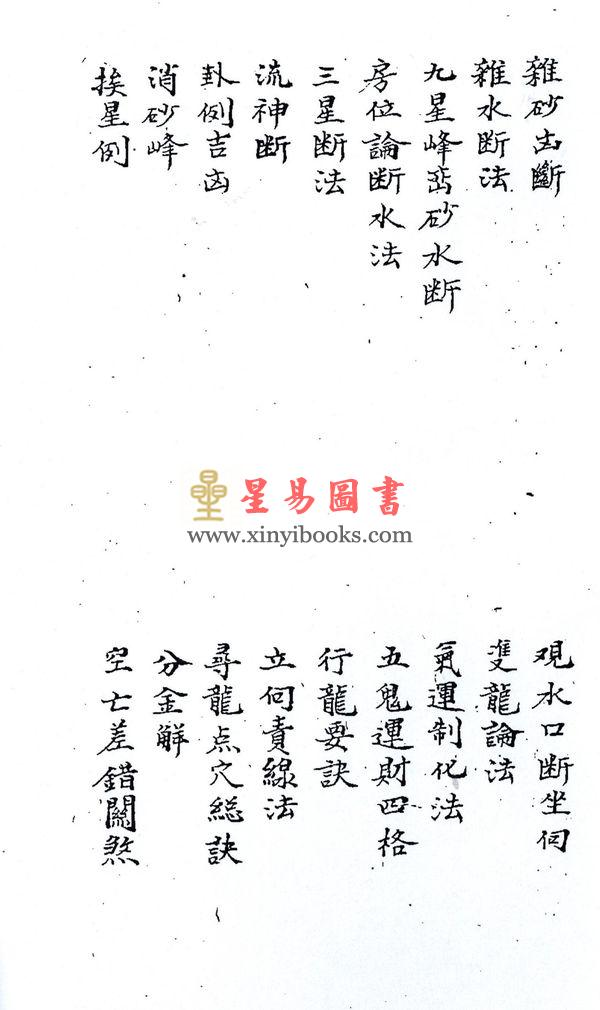 雜砂出斷
雜水断法
九星峰巒砂水断
房位論断水法
三星断法
流神断
卦例吉凶
消砂峰
挨星例
星易圖書
www.xinyibooks.com
观水口断坐向
雙龍論法
氣運制化法
五鬼運財四格
行龍要訣
立向責線法
尋龍点穴総訣
分金解
空亡差錯關煞